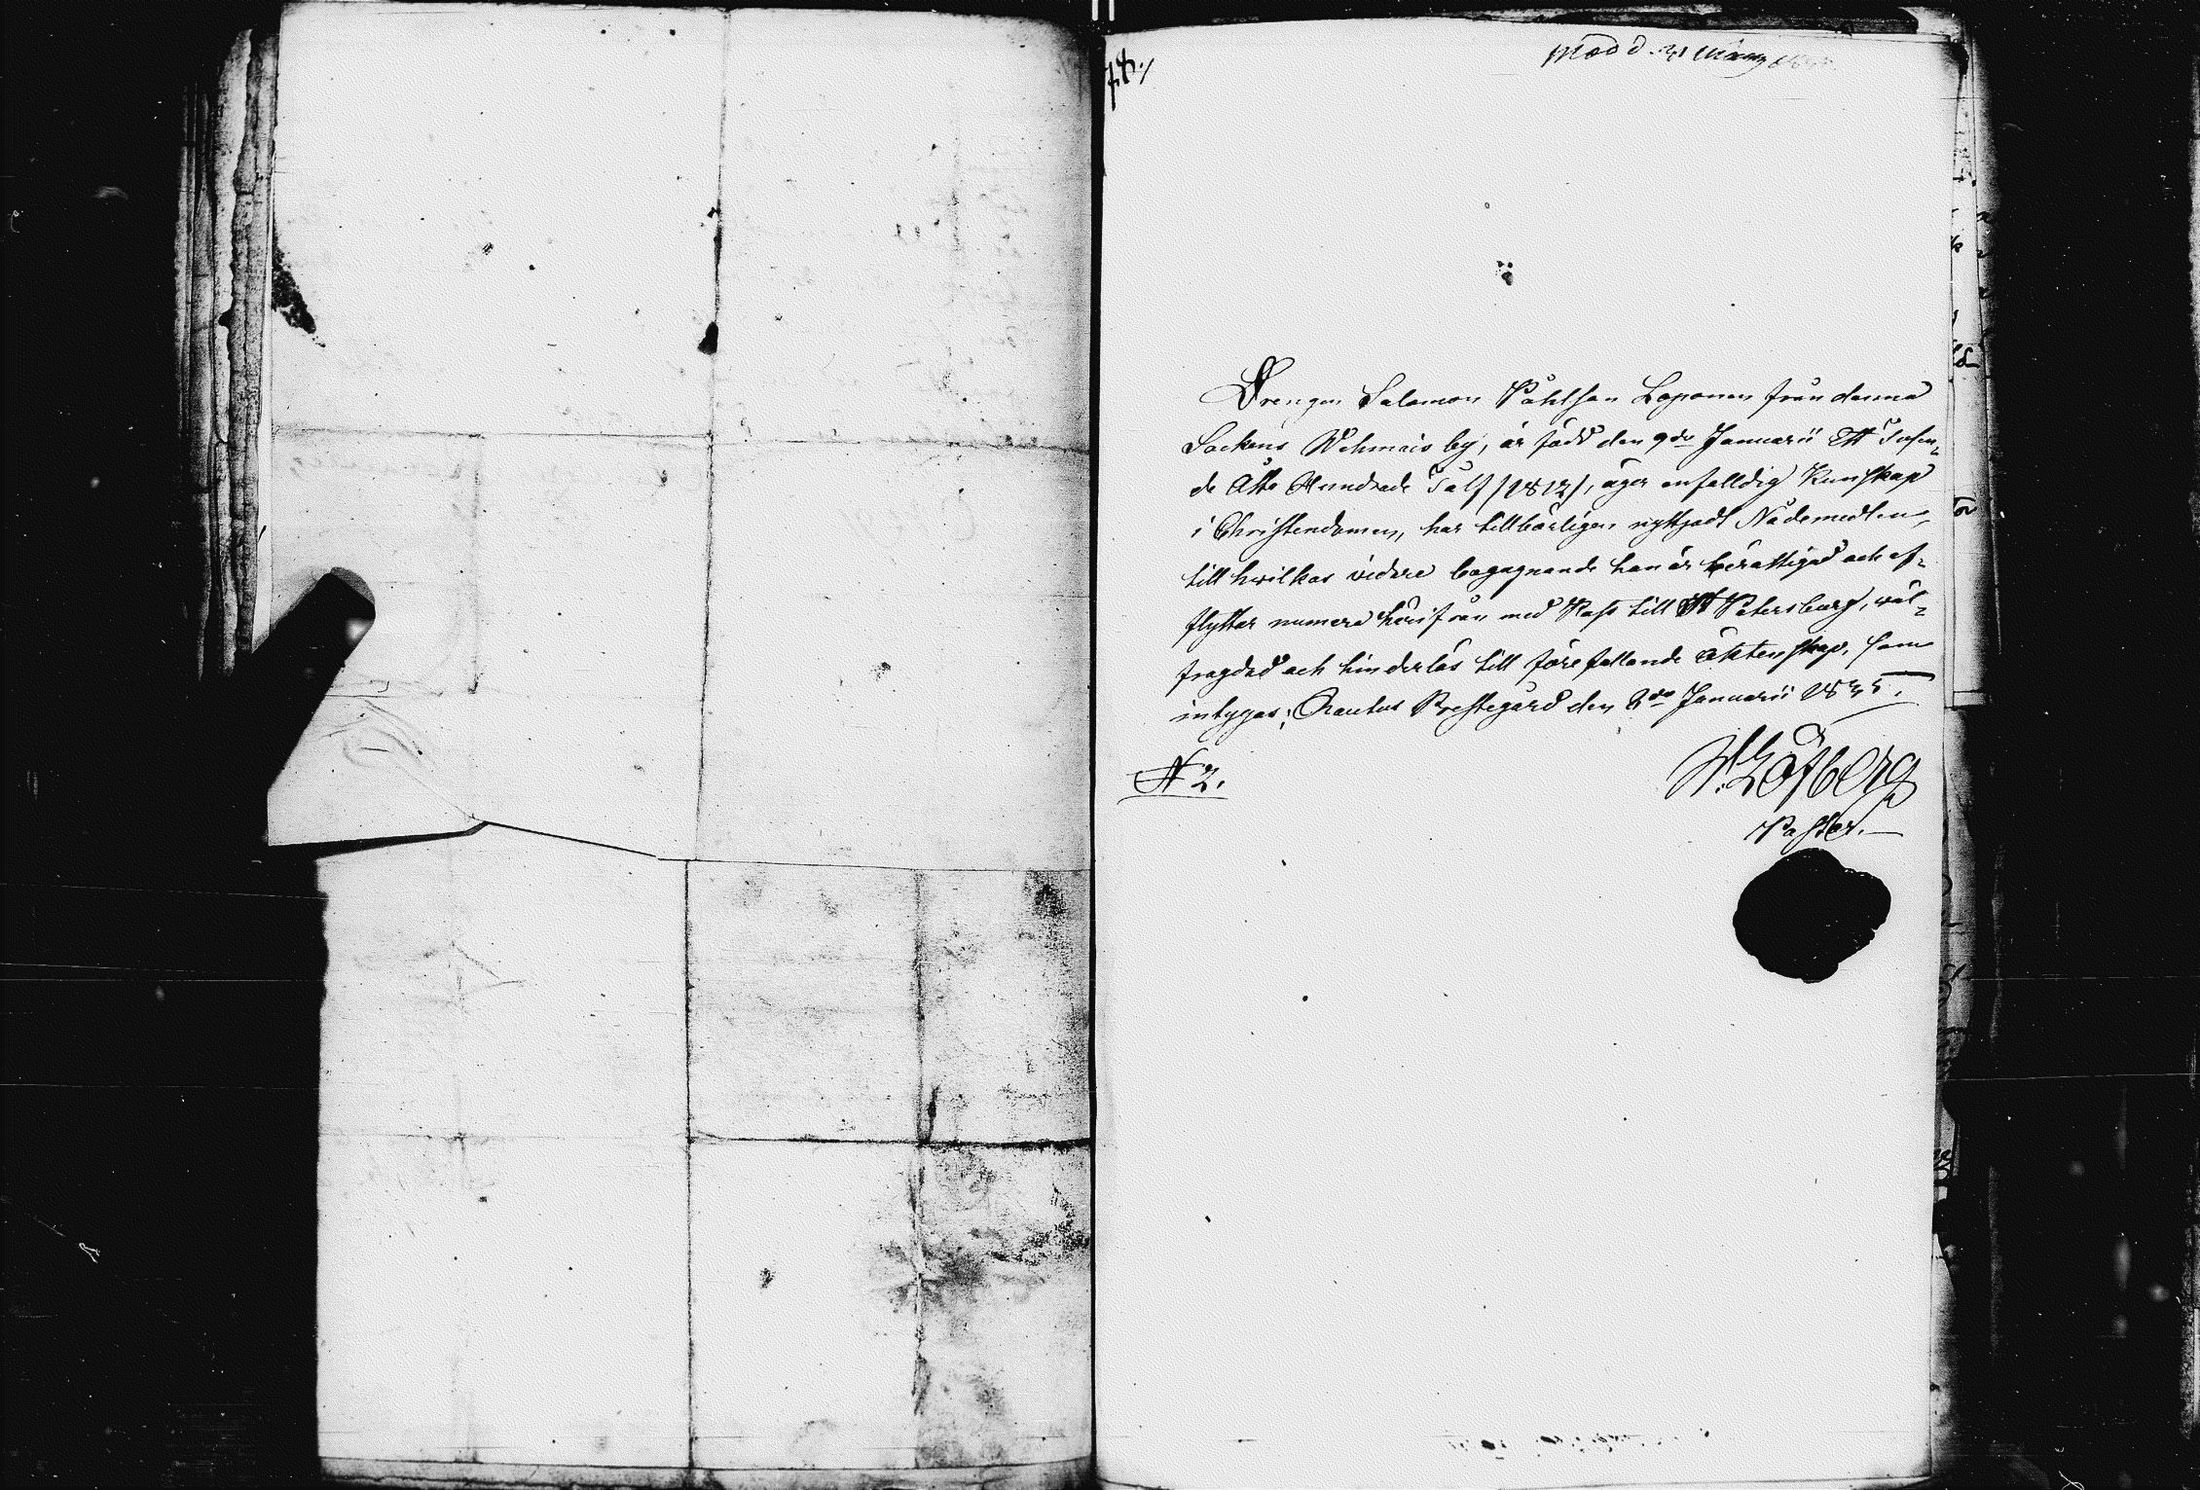 78./
Drengen Salomon Påhlsson Loponen från denna
Sockens Wehmais by, är född den 9de Januarii Ett Tusen-
de Åtta Hundrade Tolf /1812/, äger enfalldig Kunskap
i Christendomen, har tillbörligen nyttjadt Nådemedlen,
till hwilkas vidare begagnande han är berättigad och af-
flyttar numera härifrån med Pass till St Petersburg, wäl-
fregdad och hinderlös till förefallande äktenskap, som
intygas; Rautus Prestegård den 2de Januarii 1835.
N 2.
Löfberg
Pastor.